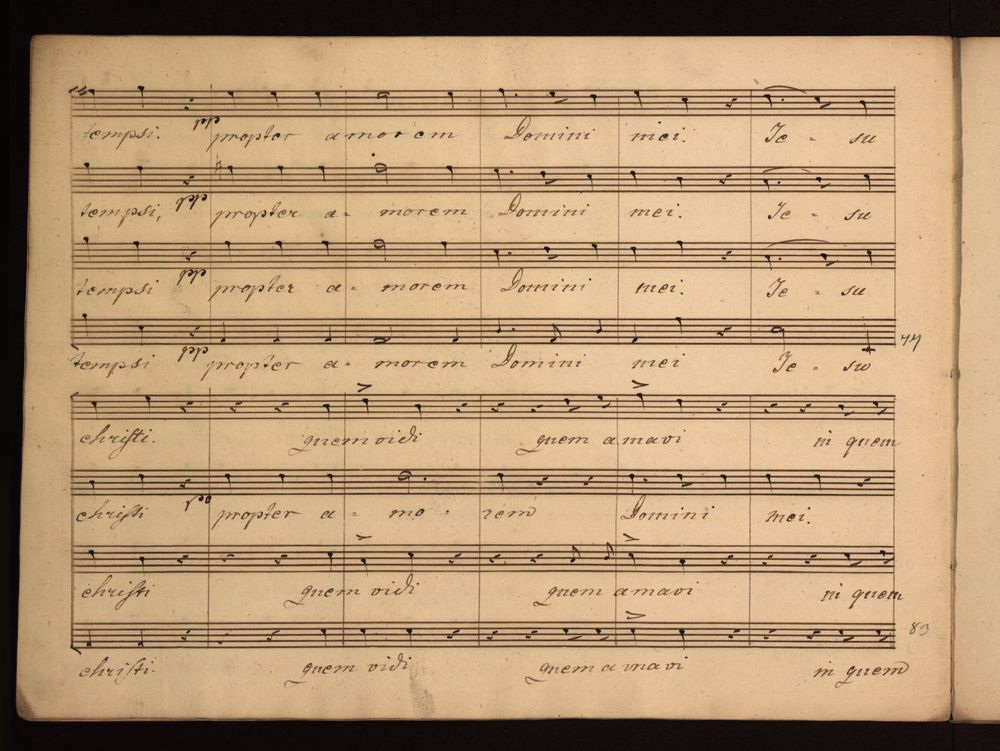 tempsi. pp propter amorem Domini mei. Ie - su
tempsi, ppp propter a - morem Domini mei. Ie - su
tempsi pp propter a - morem Domini mei. Ie - su
tempsi ppp propter a - morem Domini mei Ie - su
77
christi. quem vidi quem amavi in quem
christi po propter a - mo - rem Domini mei.
christi quem vidi quem amavi in quem
83
christi quem vidi quem amavi in quem